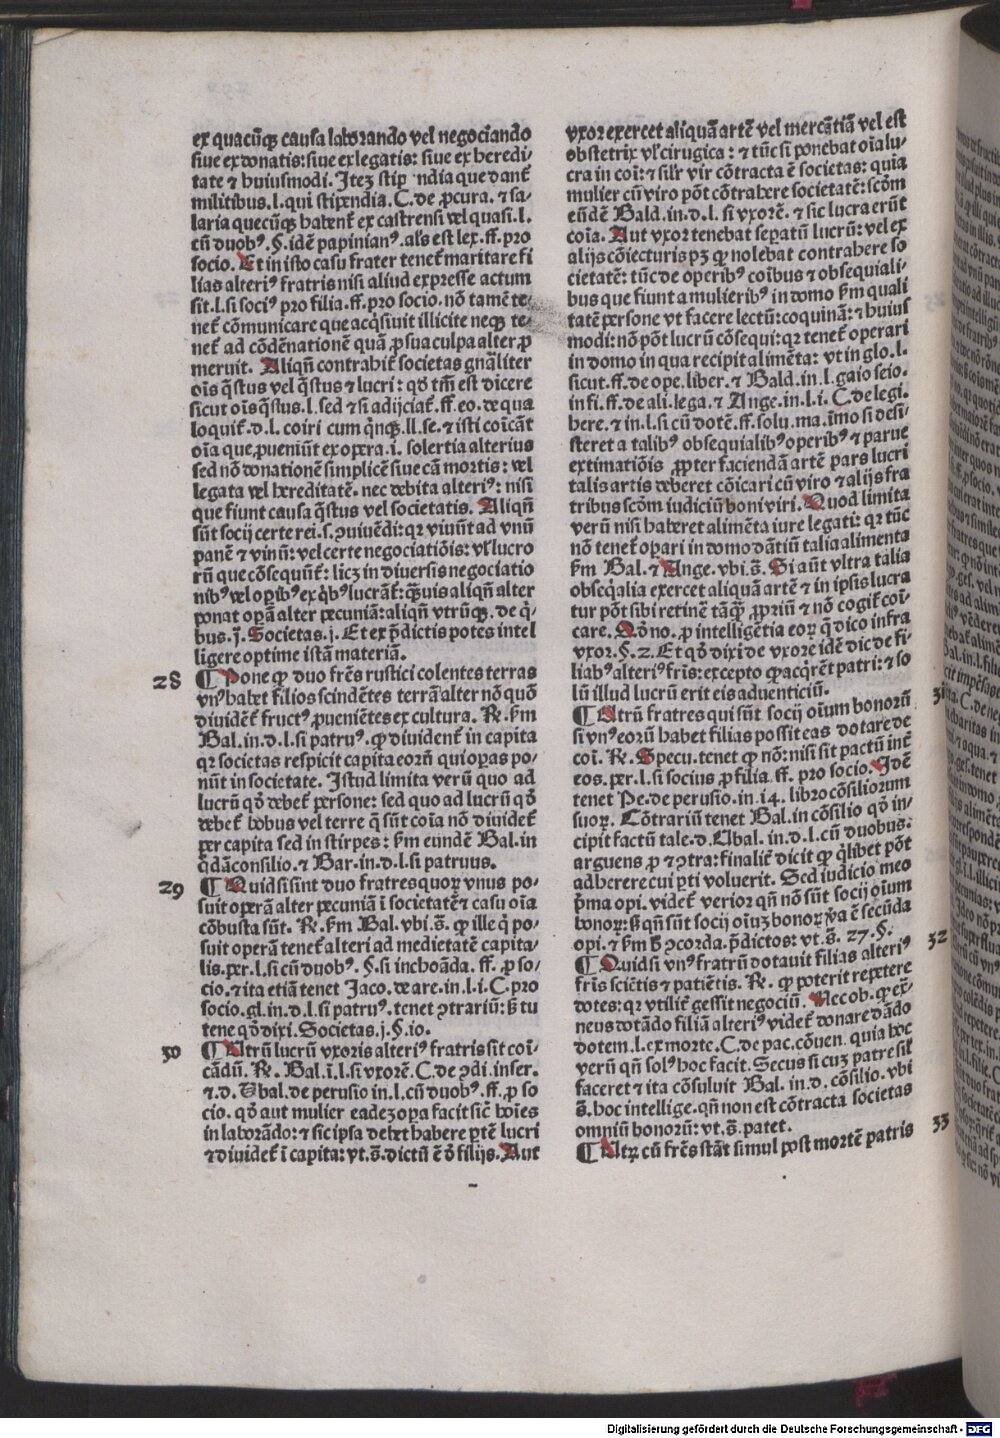 ex quacūqꝫ causa laborando vel negociando
siue ex donatis: siue ex legatis: siue ex heredi⸗
tate ⁊ huiusmodi. Itez stip ndia que dant̄
militibus. l. qui stipendia. C. de ꝓcura. ⁊ sa⸗
laria quecūqꝫ habent̄ ex castrensi vel quasi. l.
cū duobꝰ. §. idē papinianꝰ. als est lex. ff. pro
socio. Et in isto casu frater tenet̄ maritare fi
lias alteriꝰ fratris nisi aliud expresse actum
sit. l. si sociꝰ pro filia. ff. pro socio. nō tamē te⸗
net̄ cōmunicare que acq̄siuit illicite neqꝫ te⸗
net̄ ad cōdēnationē quā ꝓ sua culpa alter ꝓ
meruit. Aliqn̄ contrahit̄ societas gn̄aliter
oīs q̄stus vel q̄stus ⁊ lucri: qd̄ tm̄ est dicere
sicut oīs q̄stus. l. sed ⁊ si adijciat̄. ff. eo. de qua
loquit̄. d. l. coiri cum q̄nqꝫ. ll. se. ⁊ isti coīcāt
oīa que ꝓueniūt ex opera. i. solertia alterius
sed nō donationē simplicē siue cā mortis: vel
legata vel hereditatē. nec debita alteriꝰ: nisi
que fiunt causa q̄stus vel societatis. Aliqn̄
sūt socij certe rei. s. ꝯuiuēdi: qꝛ viuūt ad vnū
panē ⁊ vinū: vel certe negociatiōis: vl̓ lucro
rū que cōsequūt̄: licꝫ in diuersis negociatio
nibꝰ vel oꝑibꝰ ex q̄bꝰ lucrāt̄: q̄uis aliqn̄ alter
ponat oꝑā alter pecuniā: aliqn̄ vtrūqꝫ. de q̄⸗
bus. j. Societas. j. Et ex p̄dictis potes intel
ligere optime istā materiā.
28 ¶ Pone ꝙ duo fr̄es rustici colentes terras
vnꝰ habet filios scindētes terrā alter nō quō
diuidēt̄ fructꝰ ꝓueniētes ex cultura. R̄. ẜm
Bal. in. d. l. si patruꝰ. ꝙ diuident̄ in capita
qꝛ societas respicit capita eorū qui oꝑas po⸗
nūt in societate. Istud limita verū quo ad
lucrū qd̄ debet̄ persone: sed quo ad lucrū qd̄
debet̄ bobus vel terre q̄ sūt coīa nō diuidet̄
per capita sed in stirpes: ẜm eundē Bal. in
q̄dā consilio. ⁊ Bar. in. d. l. si patruus.
29 ¶ Quid si sint duo fratres quoꝝ vnus po⸗
suit operā alter pecuniā ī societatē ⁊ casu oīa
cōbusta sūt. R̄. ẜm Bal. vbi. s̄. ꝙ ille q̄ po⸗
suit operā tenet̄ alteri ad medietatē capita⸗
lis. per. l. si cū duobꝰ. §. si inchoāda. ff. ꝓ so⸗
cio. ⁊ ita etiā tenet Jaco. de are. in. l. i. C. pro
socio. gl. in. d. l. si patruꝰ. tenet ꝯtrariū: ß tu
tene qd̄ dixi. Societas. j. §. io.
30 ¶ Utrū lucrū vxoris alteriꝰ fratris sit coī⸗
cādū. R̄. Bal. ī. l. si vxorē. C. de ꝯdi. inser.
⁊. d. Ubal. de perusio in. l. cū duobꝰ. ff. ꝓ so
cio. qd̄ aut mulier eadez oꝑa facit sic̄ hoīes
in laborādo: ⁊ sic ipsa debet habere ꝑtē lucri
⁊ diuidet̄ ī capita: vt. s̄. dictū ē d̄ filijs. Aut
vxor exercet aliquā artē vel mercātiā vel est
obstetrix vl̓ cirugica: ⁊ tūc si ponebat oīa lu⸗
cra in coī: ⁊ silr̄ vir cōtracta ē societas: quia
mulier cū viro pōt cōtrahere societatē: scd̄m
eūdē Bald. in. d. l. si vxorē. ⁊ sic lucra erūt
coīa. Aut vxor tenebat seꝑatū lucrū: vel ex
alijs cōiecturis pꝫ ꝙ nolebat contrahere so
cietatē: tūc de operibꝰ coībus ⁊ obsequiali⸗
bus que fiunt a mulieribꝰ in domo ẜm quali
tatē persone vt facere lectū: coquinā: ⁊ huius
modi: nō pōt lucrū cōsequi: qꝛ tenet̄ operari
in domo in qua recipit alimēta: vt in glo. l.
sicut. ff. de ope. liber. ⁊ Bald. in. l. gaio seio.
in fi. ff. de ali. lega. ⁊ Ange. in. l. i. C. de legi.
here. ⁊ in. l. si cū dotē. ff. solu. ma. īmo si desi⸗
steret a talibꝰ obsequialibꝰ operibꝰ ⁊ parue
extimatiōis ꝓpter faciendā artē pars lucri
talis artis deberet cōicari cū viro ⁊ alijs fra
tribus scd̄m iudiciū boni viri. Quod limita
verū nisi haberet alimēta iure legati: qꝛ tūc
nō tenet̄ oꝑari in domo dātiū talia alimenta
ẜm Bal. ⁊ Ange. vbi. s̄. Si aūt vltra talia
obseq̄alia exercet aliquam artē ⁊ in ipsis lucra
tur pōt sibi retinē tāq̄ꝫ ꝓpriū ⁊ nō cogit̄ coī⸗
care. Qd̄ no. ꝓ intelligētia eoꝝ q̄ dico infra
vxor. §. 2. Et qd̄ dixi de vxore idē dic de fi⸗
liabꝰ alteriꝰ fr̄is: excepto ꝙ acq̄rēt patri: ⁊ so
lū illud lucrū erit eis aduenticiū.
¶ Utrū fratres qui sūt socij oīum bonorū 31
si vnꝰ eorū habet filias possit eas dotare de
coī. R̄. Specu. tenet ꝙ nō: nisi sit pactū int̄
eos. per. l. si socius ꝓ filia. ff. pro socio. Idē
tenet Pe. de perusio. in. i4. libro cōsiliorum
suoꝝ. Cōtrariū tenet Bal. in cōsilio qd̄ in⸗
cipit factū tale. d. Ubal. in. d. l. cū duobus.
arguens ꝓ ⁊ ꝯtra: finalit̄ dicit ꝙ q̄libet pōt
adherere cui ꝑti voluerit. Sed iudicio meo
p̄ma opi. videt̄ verior qn̄ nō sūt socij oīum
bonoꝝ: ß qn̄ sūt socij oīuꝫ bonoꝝ ꝟa ē secūda
opi. ⁊ ẜm ꝯcorda. p̄dictos: vt. s̄. 27. §.
¶ Quid si vnꝰ fratrū dotauit filias alteriꝰ 32
fr̄is sciētis ⁊ patiētis. R̄. ꝙ poterit repetere
dotes: qꝛ vtilit̄ gessit negociū. Nec ob. ꝙ ex⸗
neus dotādo filiā alteriꝰ videt̄ donare dādo
dotem. l. ex morte. C. de pac. cōuen. quia hoc
verū qn̄ solꝰ hoc facit. Secus si cuꝫ patre sil̓
faceret ⁊ ita cōsuluit Bal. in. d. cōsilio. vbi
s̄. hoc intellige. qn̄ non est cōtracta societas
omniū bonorū: vt. s̄. patet.
¶ Utꝝ cū fr̄es stāt simul post mortē patris 33
Digitalisierung gefördert durch die Deutsche Forschungsgemeinschaft - DFG